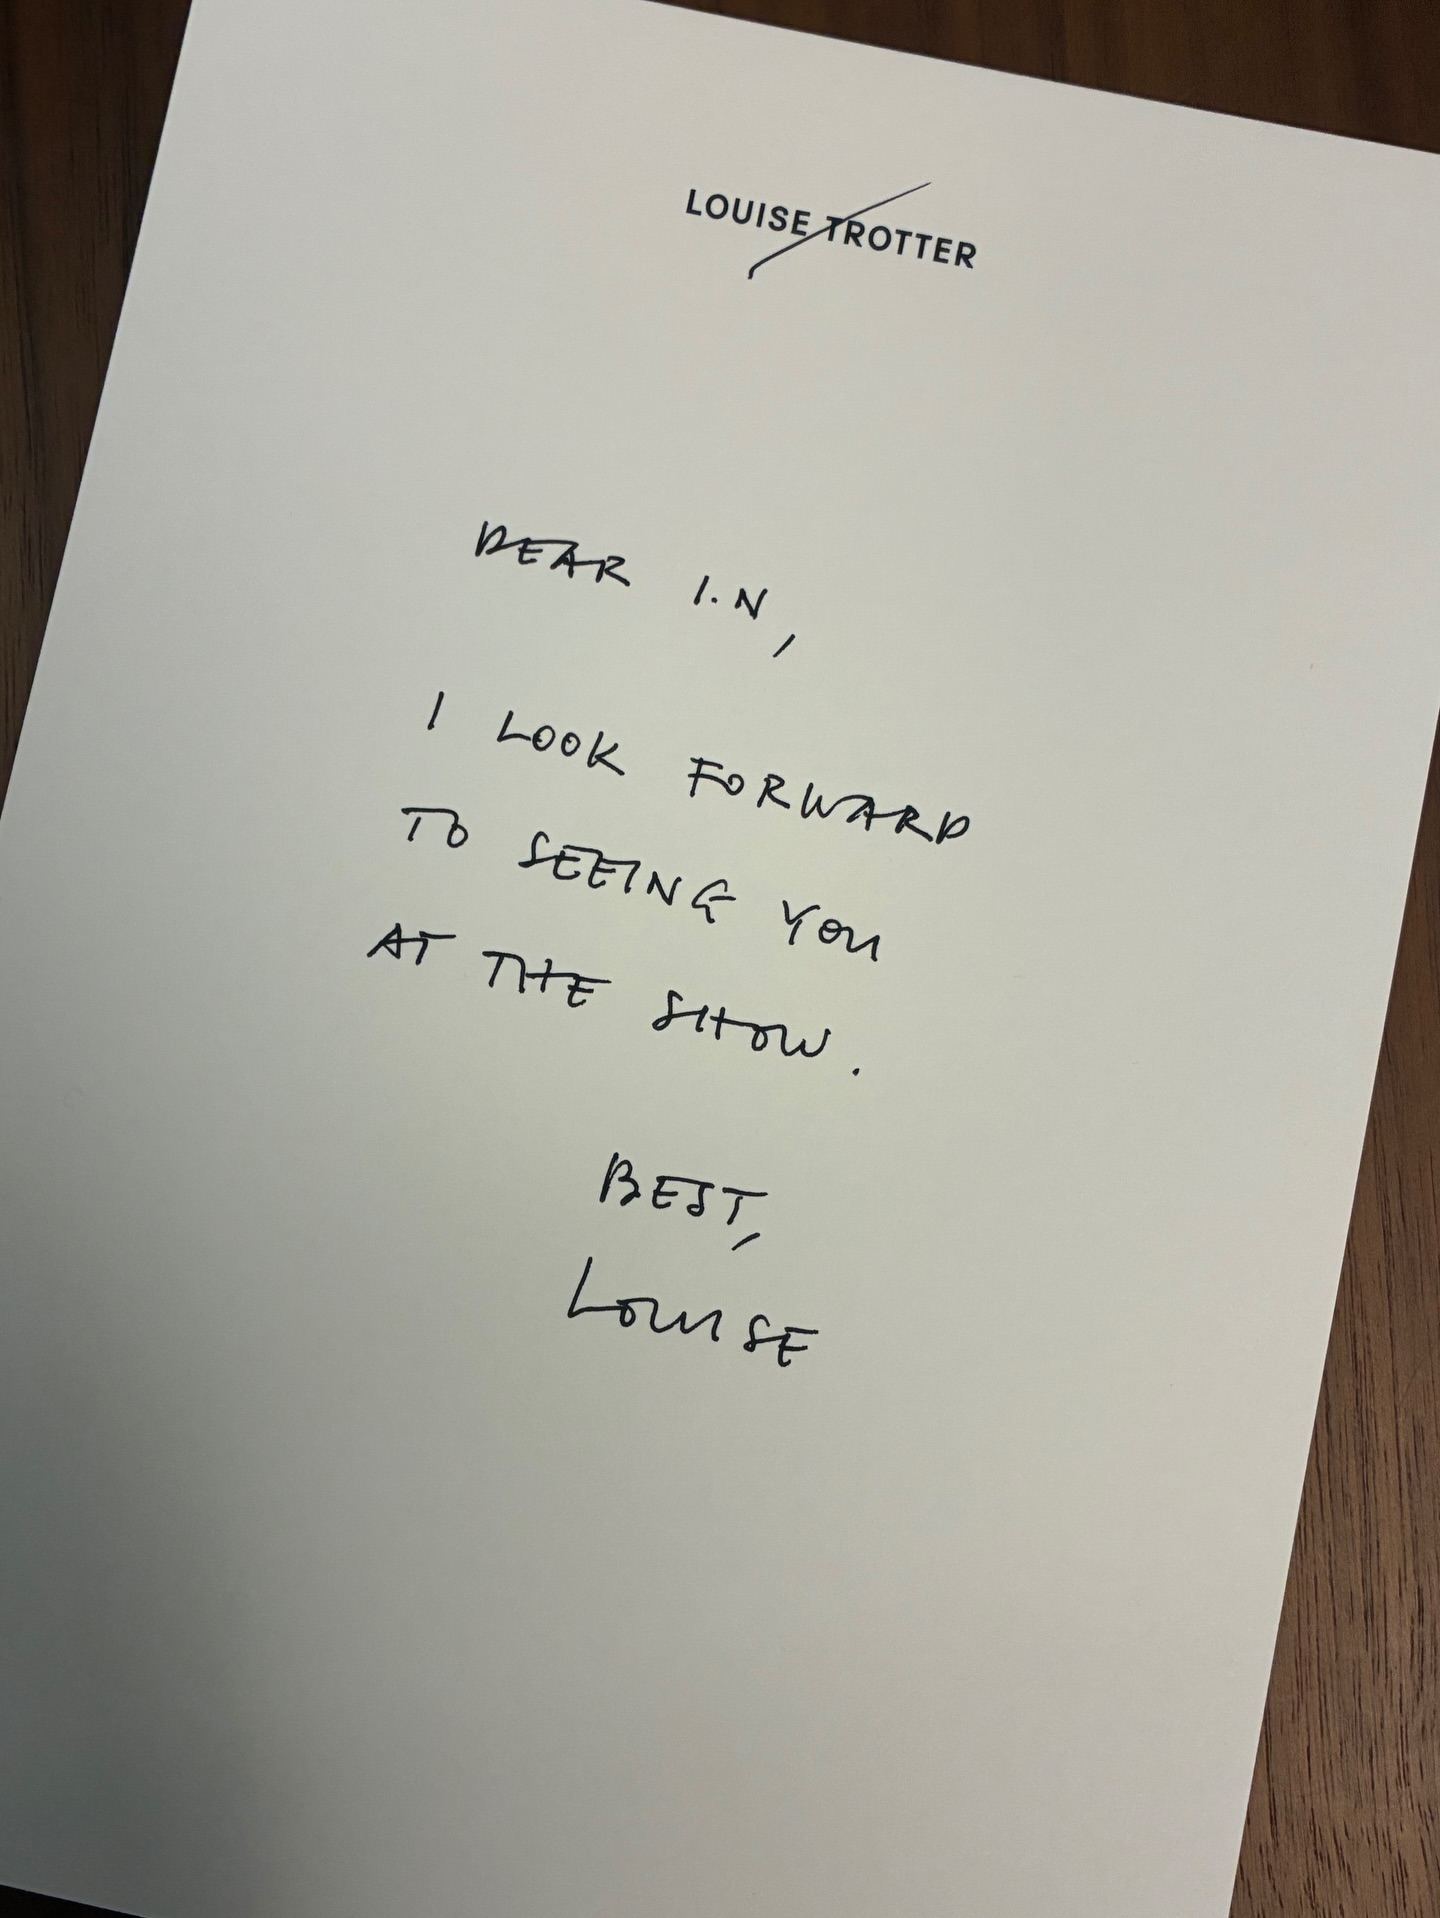 LOUISE TROTTER
DEAR I.N,
I LOOK FORWARD
TO SEEING YOU
AT THE SHOW.
BEST,
LOUISE